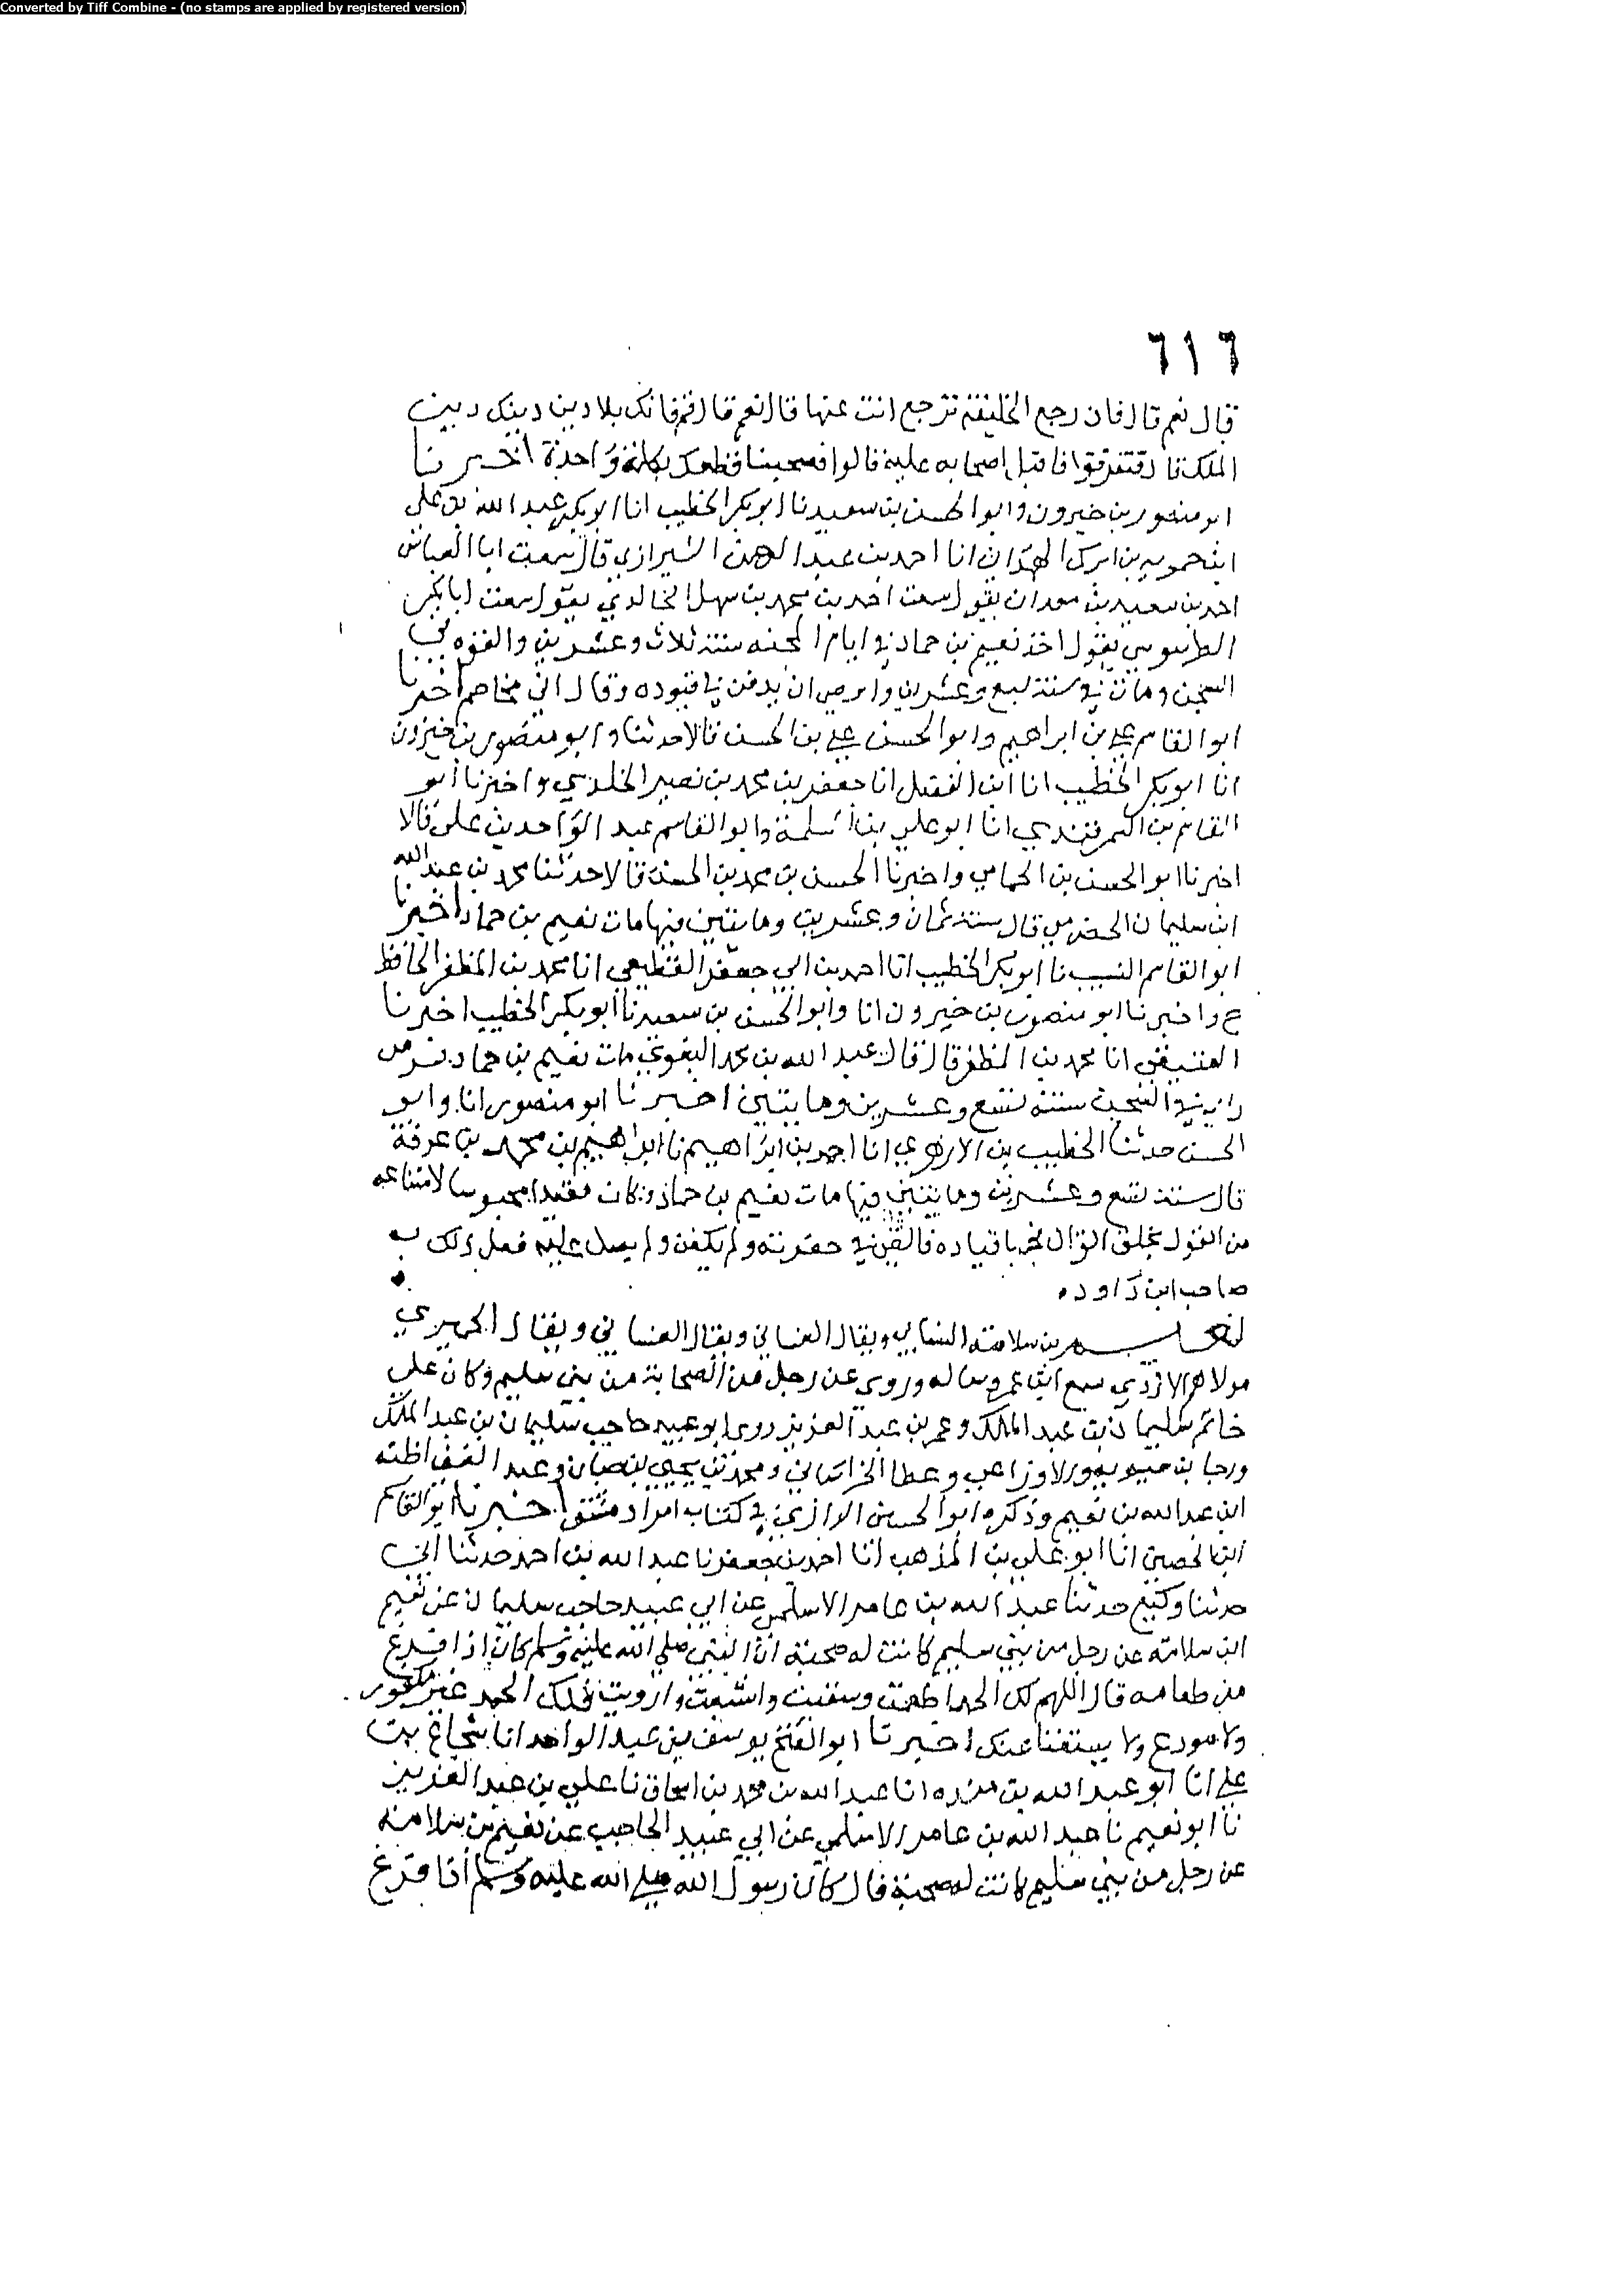 Converted by Tiff Combine - (no stamps are applied by registered version)
٦١٦
قال نعم قال فان رجع الخليفة ترجع انت عنها قال نعم قال قم فانك بلا دين دينك دين
الملك قال فتفرقوا فاقبل اصحابه عليه قالوا فضحتنا قطعك بكلمة واحدة اخبرنا
ابو منصور بن خيرون وابو الحسن بن سعيد نا ابو بكر الخطيب انا ابو بكر عبد الله بن على
ابن حمويه بن ابرك الهمذاني انا احمد بن عبد الرحمن الشيرازي قال سمعت ابا العباس
احمد بن سعيد بن معدان يقول سمعت احمد بن محمد بن سهل الخالدي يقول سمعت ابا بكر
الطرسوسي يقول اخذ نعيم بن حماد في ايام المحنه سنة ثلاث وعشرين والقوه في
السجن ومات في سنة سبع وعشرين واوصى ان يدفن في قيوده وقال اني مخاصم اخبرنا
ابو القاسم علي بن ابراهيم وابو الحسن علي بن الحسن قالا حدثنا وابو منصور بن خيرون
انا ابو بكر الخطيب انا ابن الفضل انا جعفر بن محمد بن نصير الخلدي واخبرنا ابو
القاسم بن السمرقندي انا ابو علي بن المسلمة وابو القاسم عبد الواحد بن على قالا
اخبرنا ابو الحسن بن الحمامي واخبرنا الحسن بن محمد بن الحسن قالا حدثنا محمد بن عبد الله
ابن سليمان الحضرمي قال سنة ثمان وعشرين ومايتين فيها مات نعيم بن حماد اخبرنا
ابو القاسم النسيب نا ابو بكر الخطيب انا احمد بن ابي جعفر القطيعي انا محمد بن المظفر الحافظ
ح واخبرنا ابو منصور بن خيرون انا وابو الحسن بن سعيد نا ابو بكر الخطيب اخبرنا
العتيقي انا محمد بن المظفر قال قال عبد الله بن محمد البغوي مات نعيم بن حماد بسر من
راى في السجن سنة تسع وعشرين ومايتين اخبرنا ابو منصور انا وابو
الحسن حدثنا الخطيب بن الازهري انا احمد بن ابراهيم نا ابراهيم بن محمد بن عرفة
قال سنة تسع وعشرين ومايتين فيها مات نعيم بن حماد وكان مقيدا محبوسا لامتناعه
من القول بخلق القران فجر باقياده فالقي في حفرته ولم يكفن ولم يصل عليه فعل ذلك به
صاحب ابن داود
نعيم بن سلامة السبايي ويقال الغساني ويقال الحميري
مولاهم الازدي سمع ابن عمر وساله وروى عن رجل من الصحابة من بني سليم وكان على
خاتم سليمان بن عبد الملك وعمر بن عبد العزيز روى ابو عبيد حاجب سليمان بن عبد الملك
ورجا بن حيوة والاوزاعي وعطا الخراساني ومحمد بن يحيى بن حبان وعبد
ابن عبد الله بن نعيم وذكره ابو الحسين الرازي في كتاب امرا دمشق اخبرنا ابو القاسم
ابن الحصين انا ابو علي بن المذهب انا احمد بن جعفر نا عبد الله بن احمد حدثنا ابي
حدثنا وكيع حدثنا عبد الله بن عامر الاسلمي عن ابي عبيد حاجب سليمان عن نعيم
ابن سلامه عن رجل من بني سليم كانت له صحبة ان النبي صلى الله عليه وسلم كان اذا فرغ
من طعامه قال اللهم لك الحمد اطعمت وسقيت واشبعت وارويت فلك الحمد غير مكفور
ولا مودع ولا يستغنا عنك اخبرنا ابو الفتح يوسف بن عبد الواحد انا شجاع بن
علي انا ابو عبد الله بن منده انا عبد الله بن محمد بن اسحاق نا علي بن عبد العزيز
نا ابو نعيم نا عبد الله بن عامر الاسلمي عن ابي عبيد الحاجب عن نعيم بن سلامه
عن رجل من بني سليم كانت له صحبة قال كان رسول الله صلى الله عليه وسلم اذا فرغ